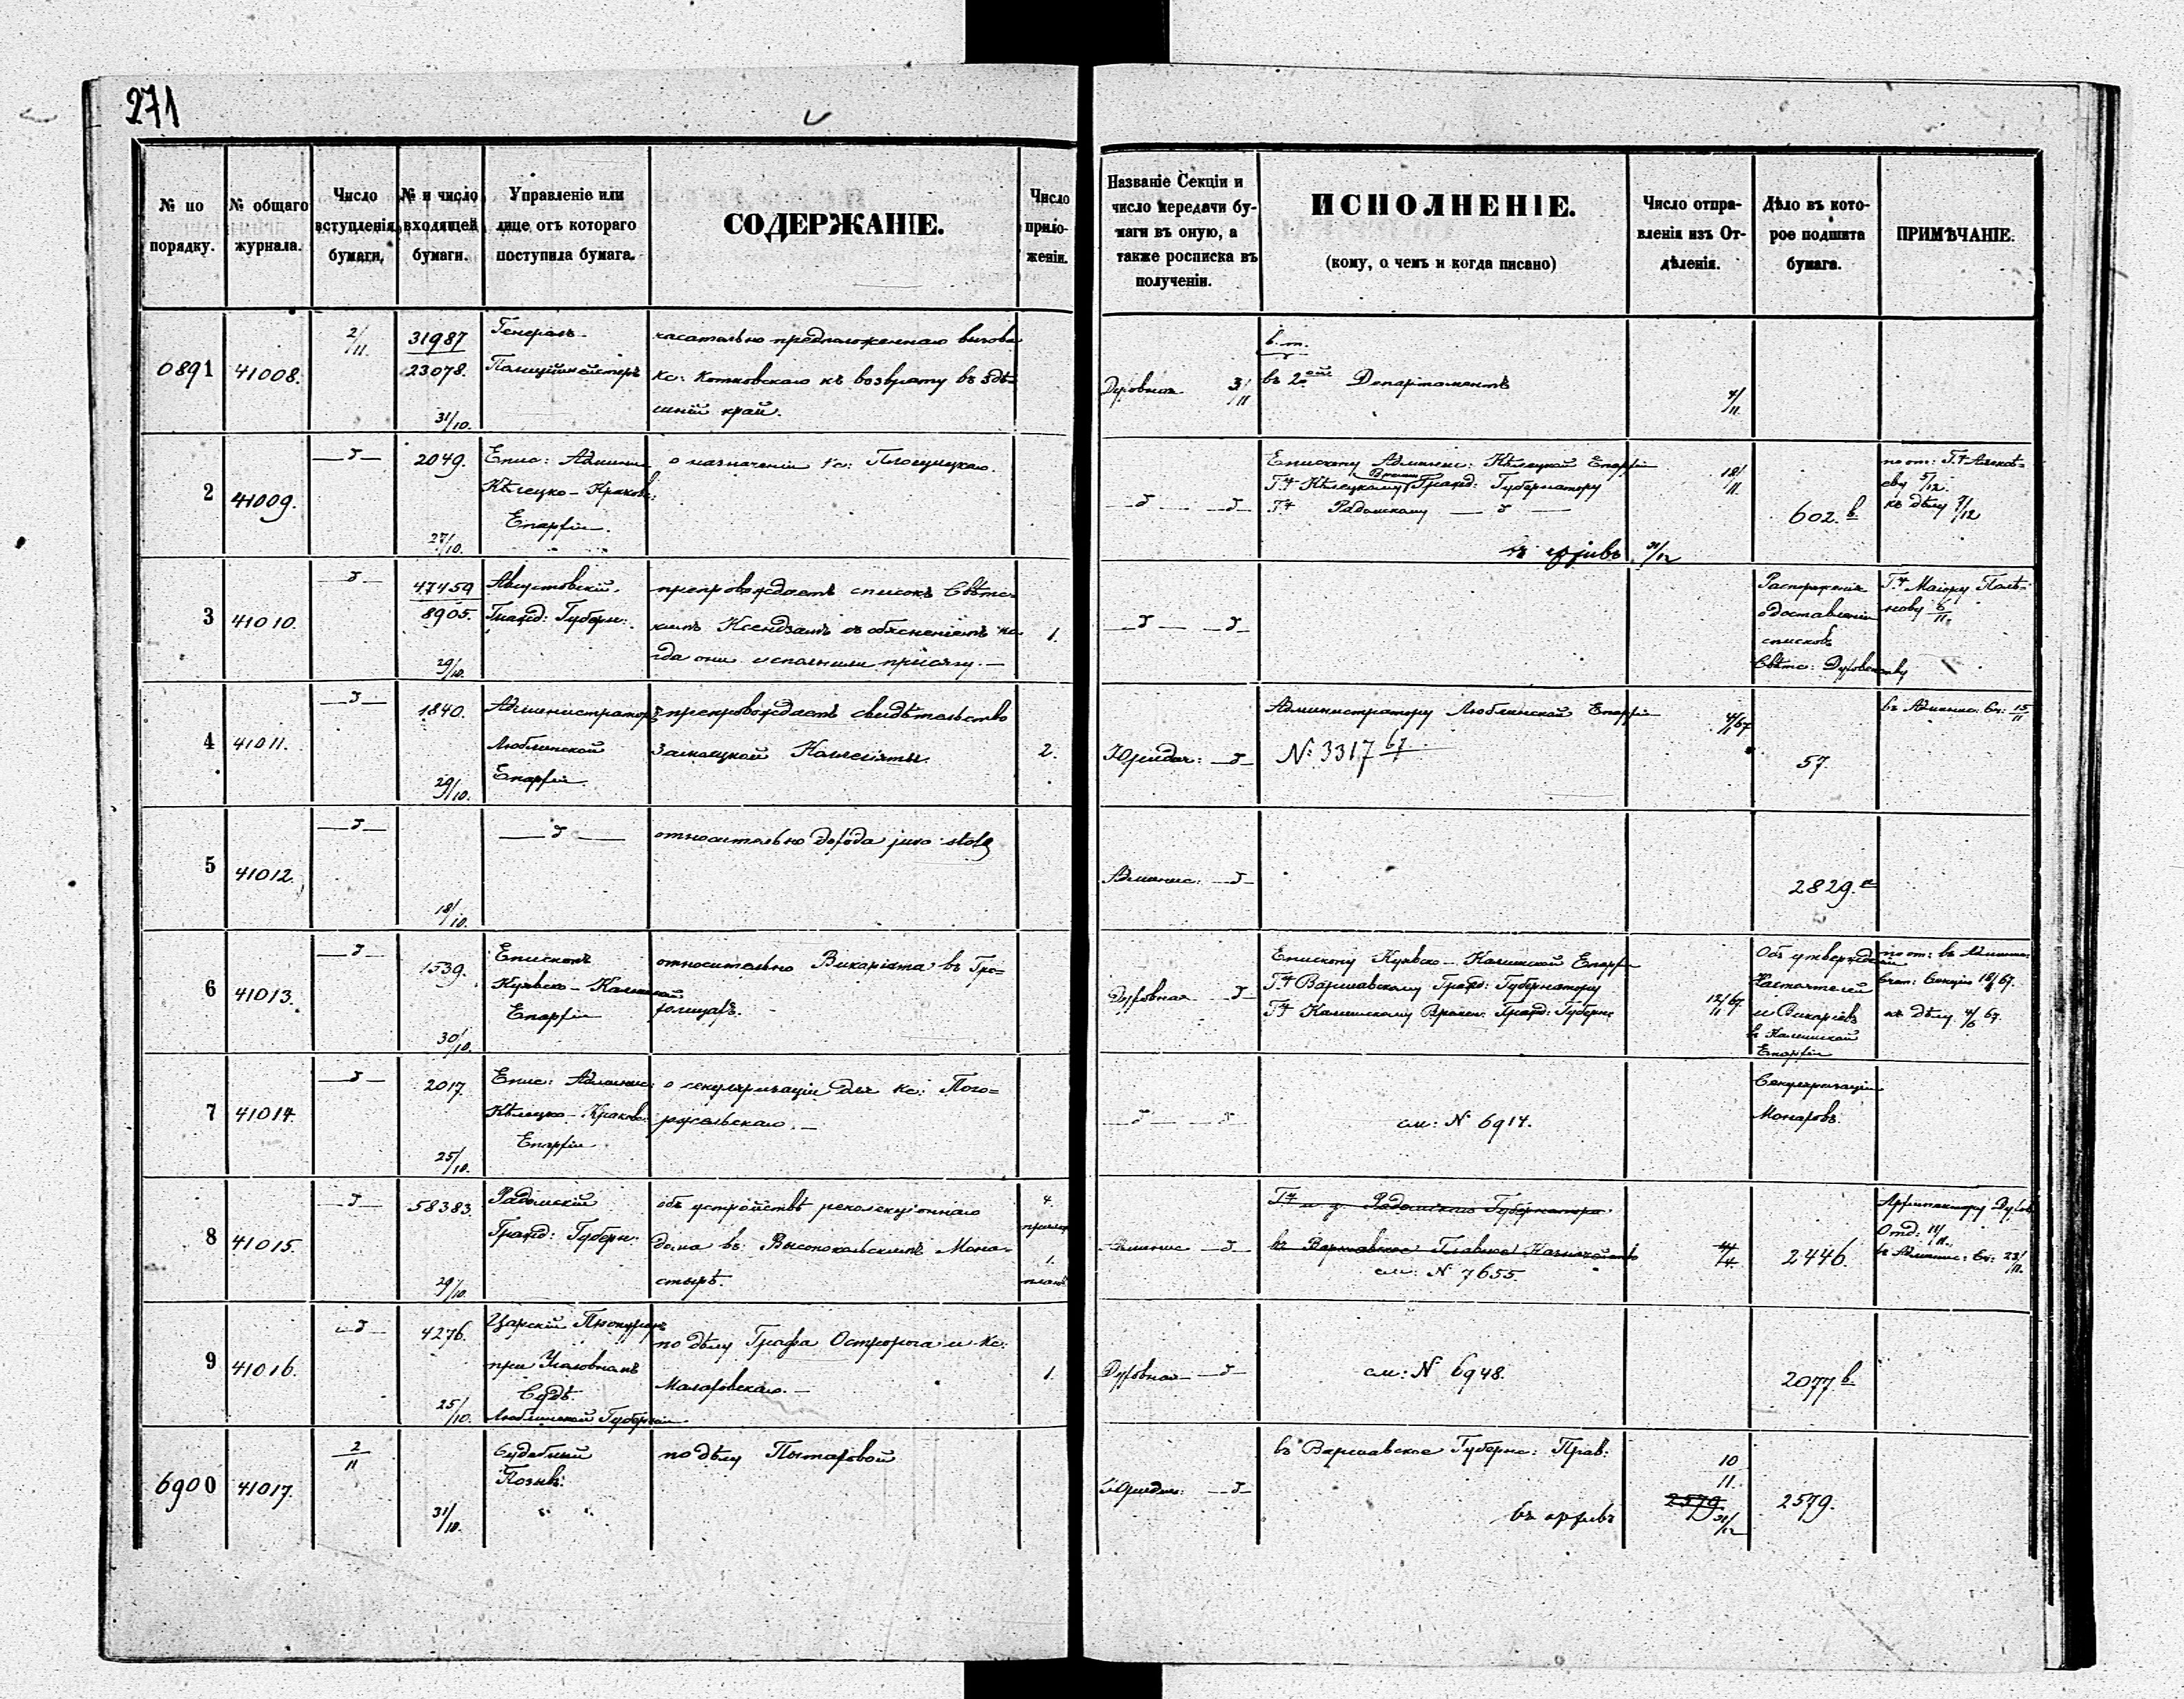 271
№ по порядку.
№ общаго журнала.
Число вступленія бумаги.
№ и число входящей бумаги.
Управленіе или лице отъ котораго поступила бумага.
СОДЕРЖАНІЕ.
Число приложеній.
Названіе Секціи и число передачи бумаги въ оную, а также росписка въ полученіи.
ИСПОЛНЕНІЕ.
(кому, о чемъ и когда писано)
Число отправленія изъ Отдѣленія.
Дѣло въ которое подшита бумага.
ПРИМѢЧАНІЕ.
0891
41008.
2/11.
31987
23078.
31/10.
Генералъ-
Полиціймейстеръ
касательно предположеннаго вызова
Кс: Котковскаго къ возврату въ здѣ-
шній край.
Духовная 3/11
въ 2ой Департаментъ
4/11.
2
41009.
2049.
27/10.
Епис: Админис
Кѣлецко-Краковс:
Епархіи.
о назначеніи Кс: Площицкаго.
Епископу Админис: Кѣлецкой Епархіи
Гну Кѣлецкому Гражд: Губернатору
Гну Радомскому
въ архивъ 31/12
12/11.
602.в
5/12.
къ дѣлу 7/12
3
41010.
47459
8905.
29/10.
Августовскій
Гражд: Губерн:
препровождаетъ списокъ Свѣтс-
кимъ Ксендзамъ съ объясненіемъ ко-
гда они исполнили присягу.—
1.
Распоряженія
о доставленіи
списковъ
Свѣтс: Духовенству
Гну Маіору Полѣ-
нову 6/11.
4
41011.
1840.
29/10.
Администраторъ
Люблинской
Епархіи
препровождаетъ свидѣтельство
Замойцкой Коллегіяты.
2.
Юридич:
Администратору Люблинской Епархіи
№ 3317 67
57.
въ Админис: Сек: 15/11
5
41012.
18/10.
относительно дохода jura stolæ
Админис:
2829.
6
41013.
1539.
30/10.
Епископъ
Куявско-Калишской
Епархіи
относительно Викаріата въ Гро-
холицахъ.
Духовная
Епископу Куявско-Калишской Епархіи
Гну Варшавскому Гражд: Губернатору
Гну Калишскому Времен: Гражд: Губерн:
12/67
Объ утвержденіи
Настоятелей
и Викаріевъ
въ Калишской
Епархіи
къ дѣлу 4/6 67.
7
41014.
2017.
25/10.
Епис: Админис:
Кѣлецко-Краковс:
Епархіи
о секуляризаціи для Кс: Пого-
ржельскаго.—
см: № 6914.
Секуляризаціи
Монаховъ.
8
41015.
58383.
29/10.
Радомскій
Гражд: Губерн:
объ устройствѣ реколекціоннаго
дома въ Высококольскомъ Мона-
стырѣ.
4
1.
Админис
Гну и д. Радомскаго Губернатора.
въ Варшавское Главное Казначейство
см: № 7655.
2446.
Архитектору Духов:
Отд: 11/11.
въ Админис: Сек: 23/11.
9
41016.
4276.
25/10.
Царскій Прокуроръ
при Уголовномъ
Судѣ
Люблинской Губерніи
по дѣлу Графа Остророга и Кс:
Малаховскаго.—
1.
Духовная
см: № 6948.
2077 в.
6900
41017.
2/11
31/10.
Судебный
Позывъ:
по дѣлу Пытаровой
Юридич:
въ Варшавское Губернс: Прав:
въ архивъ
10
11.
2579
31/12
2579.